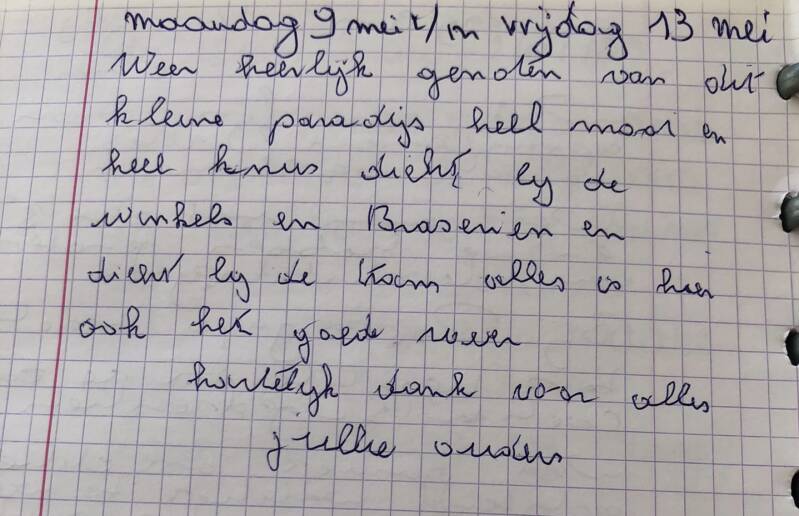 maandag 9 mei t/m vrijdag 13 mei
Weer heerlijk genoten van dit
kleine paradijs heel mooi en
heel knus dicht bij de
winkels en Braserien en
dicht bij de tram alles is hier
ook het goede weer
hartelijk dank voor alles
jullie ouders